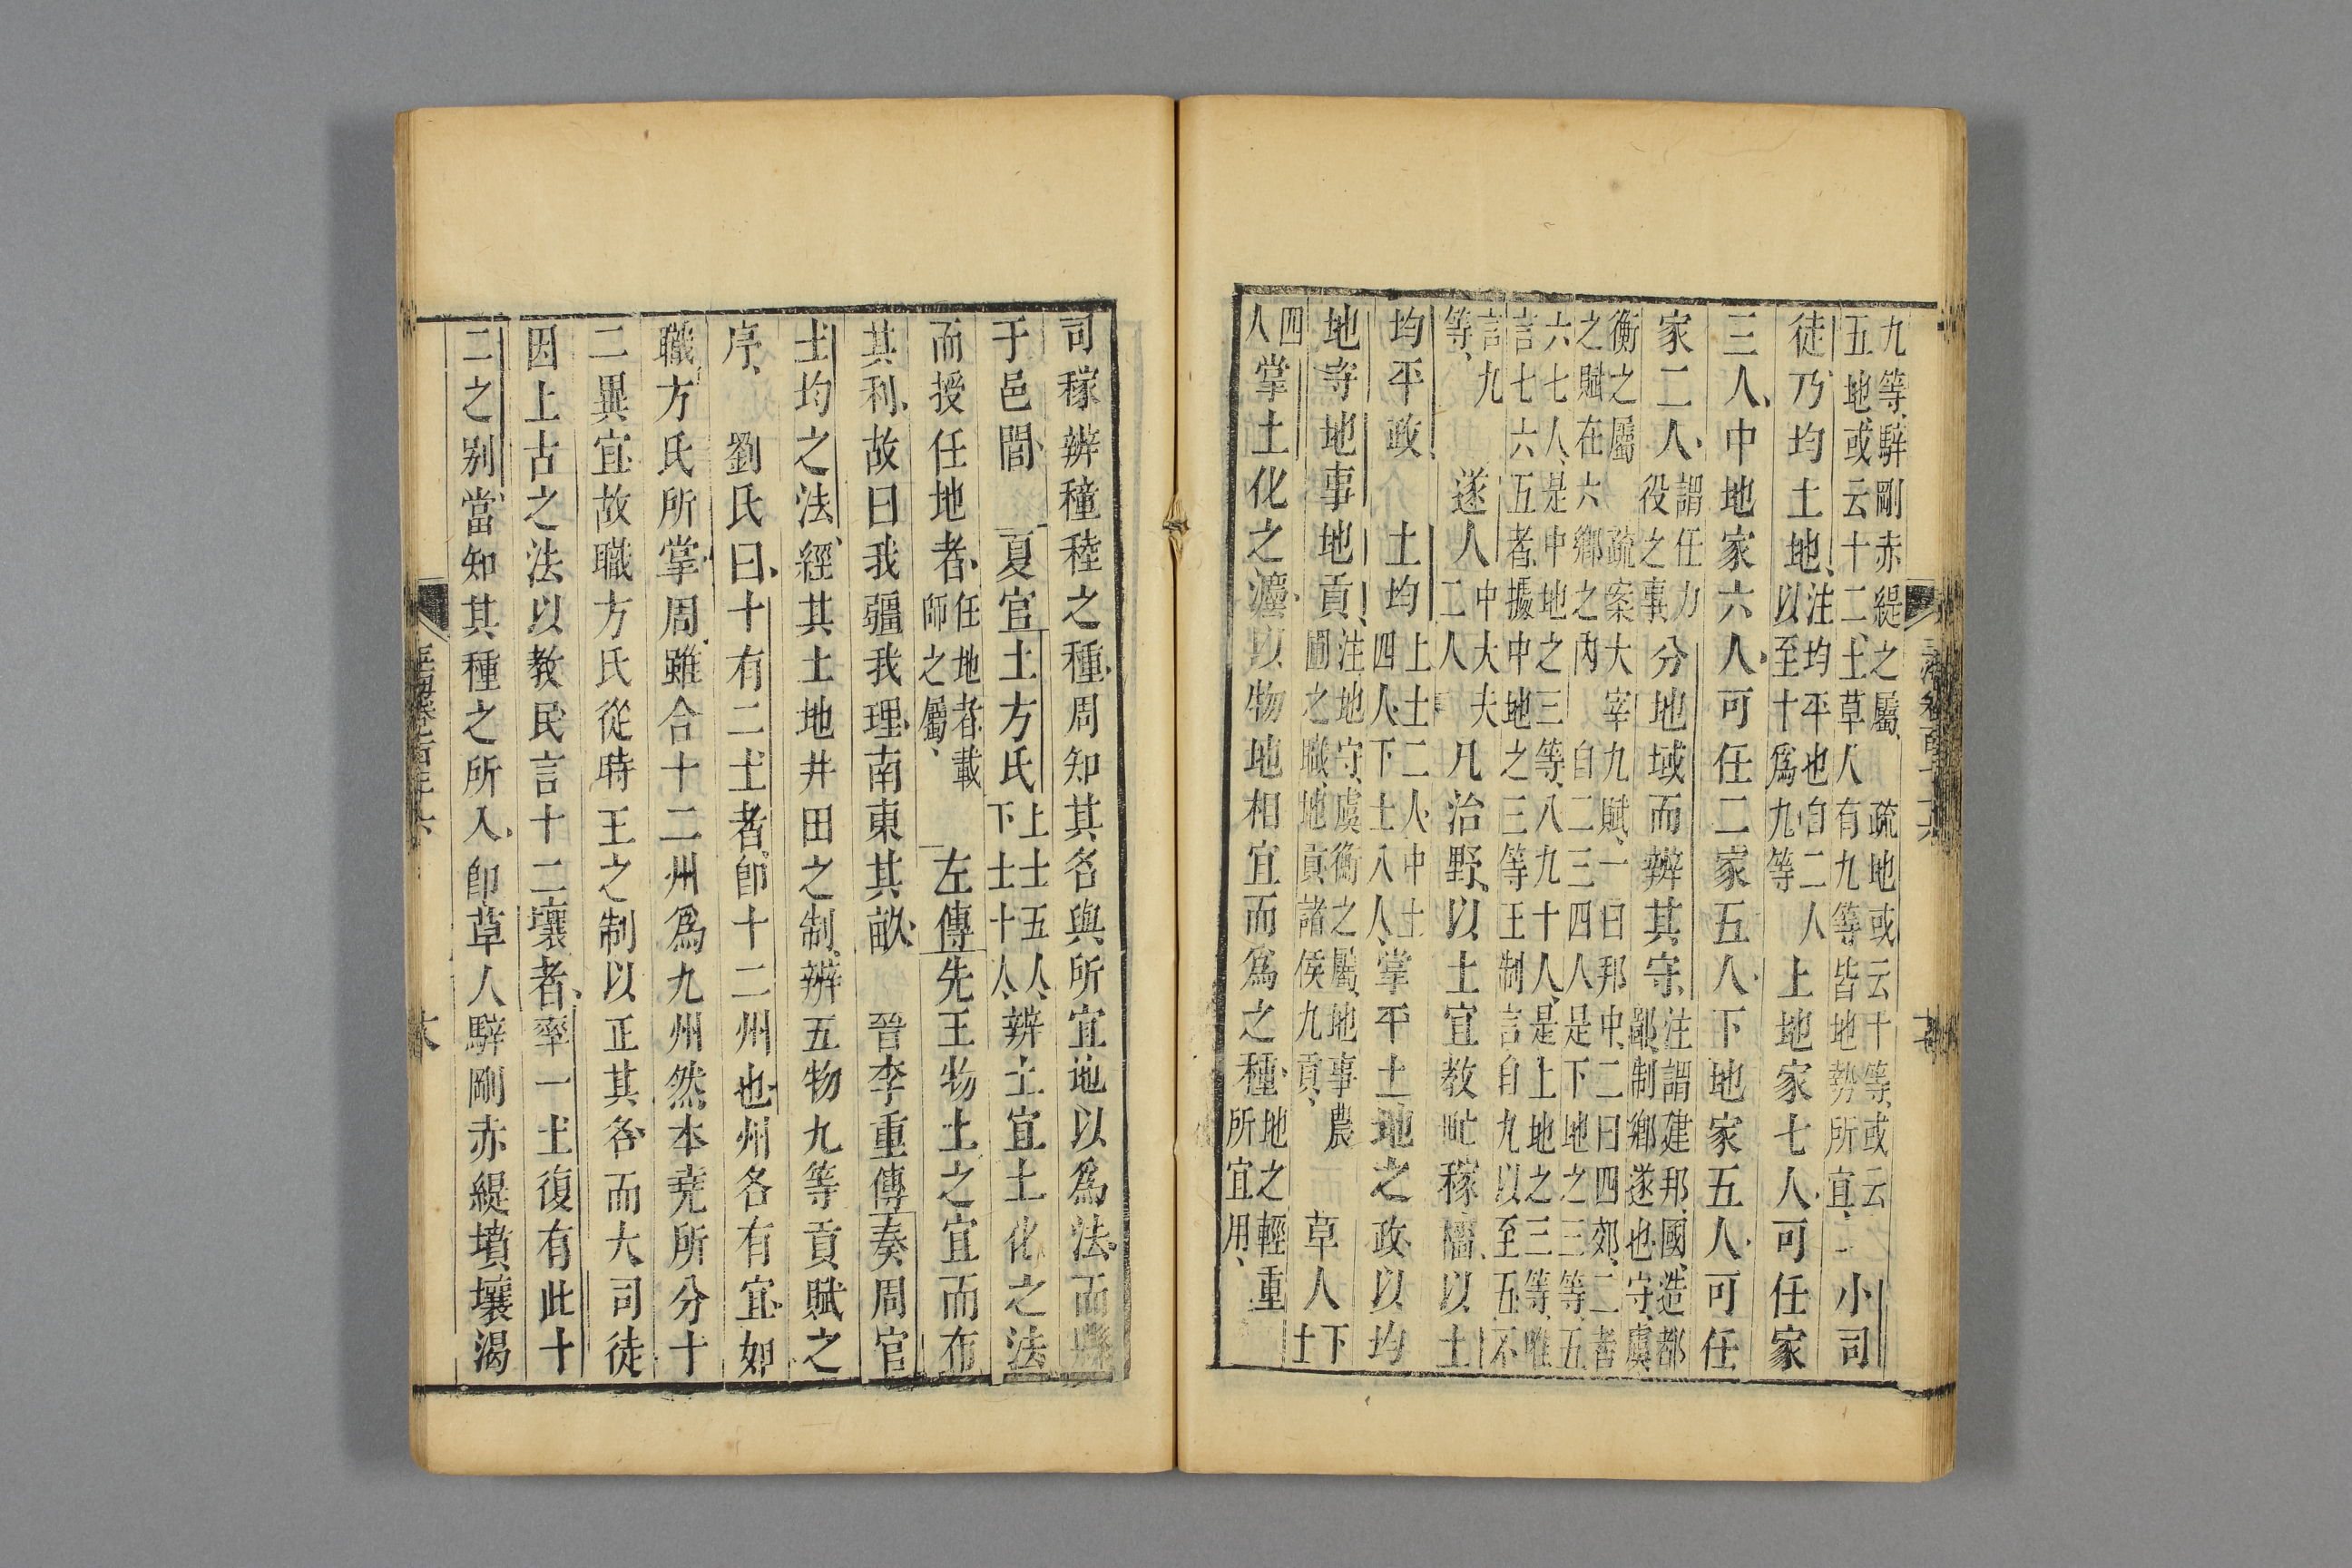 九等、騂剛赤緹之屬、疏地或云十等、或云
五地、或云十二土、草人有九等、皆地勢所宜、
小司
徒乃均土地、注均平也、自二人以至十爲九等上地家七人、可任家
三人、中地家六人、可任二家五人、下地家五人、可任
家二人、謂任力役之事分地域而辨其守、注謂建邦國、造都鄙、制鄉遂也、守、虞
衡之屬疏案大宰九賦、一曰邦中、二曰四郊、二者
之賦在六鄉之內自二二三四人是下地之三等、五
六七人、是中地之三等、八九十人、是上地之三等、唯
言七六五者、據中地之三等王制言自九以至五、不
言九等、遂人中大夫二人凡治野、以土宜教甿稼穡、以土
均平政土均上士二人、中士四人、下士八人、掌平土地之政、以均
地守地事地貢、注地守、虞衡之屬、地事、農圃之職、地貢、諸侯九貢、草人下士
四人掌土化之灋、以物地相宜而爲之種、地之輕重所宜用、
司稼辨穜稑之種、周知其名與所宜地以爲法、而縣
于邑閭、夏官土方氏上士五人、下士十人、辨土宜土化之法
而授任地者、任地者、載師之屬、左傳先王物土之宜而布
其利、故曰我疆我理、南東其畝、晉李重傳奏周官
土均之法、經其土地井田之制、辨五物九等貢賦之
序、劉氏曰、十有二土者、卽十二州也、州各有宜、如
職方氏所掌、周雖合十二州爲九州、然本堯所分十
二異宜、故職方氏從時王之制以正其名、而大司徒
因上古之法以教民、言十二壤者、率一土復有此十
二之別、當知其種之所入、卽草人騂剛赤緹墳壤渴